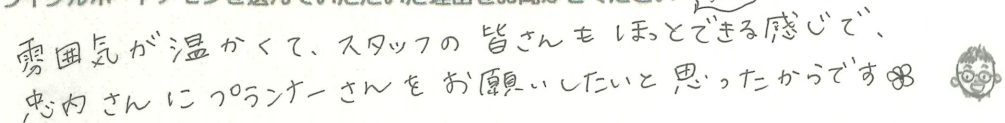 雰囲気が温かくて、スタッフの皆さんもほっとできる感じで、
忠内さんにプランナーさんをお願いしたいと思ったからです